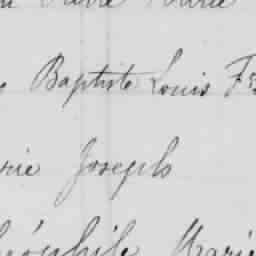 Pierre Marie
Baptiste Louis Fs
rie Joseph
éophile Marie